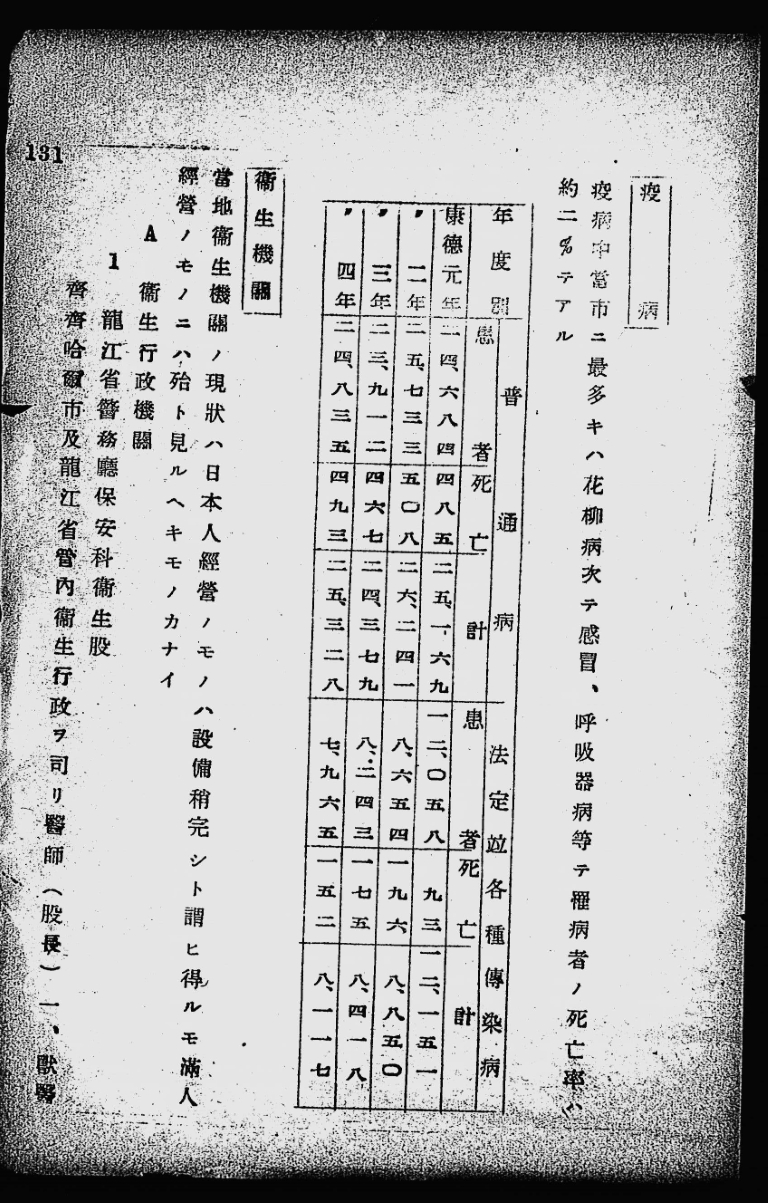 131
疫病
疫病中當市ニ最多キハ花柳病次テ感冒、呼吸器病等テ罹病者ノ死亡率ハ
約二％テアル
年度別 普通病 法定竝各種傳染病
患者 死亡 計 患者 死亡 計
康德元年 二四、六八四 四八五 二五、一六九 一二、〇五八 九三 一二、一五一
〃 二年 二五、七三三 五〇八 二六、二四一 八、六五四 一九六 八、八五〇
〃 三年 二三、九一二 四六七 二四、三七九 八、二四三 一七五 八、四一八
〃 四年 二四、八三五 四九三 二五、三二八 七、九六五 一五二 八、一一七
衞生機關
當地衞生機關ノ現狀ハ日本人經營ノモノハ設備稍完シト謂ヒ得ルモ滿人
經營ノモノニハ殆ト見ルヘキモノカナイ
A 衞生行政機關
1 龍江省警務廳保安科衞生股
齊齊哈爾市及龍江省管內衞生行政ヲ司リ醫師（股長）一、獸醫